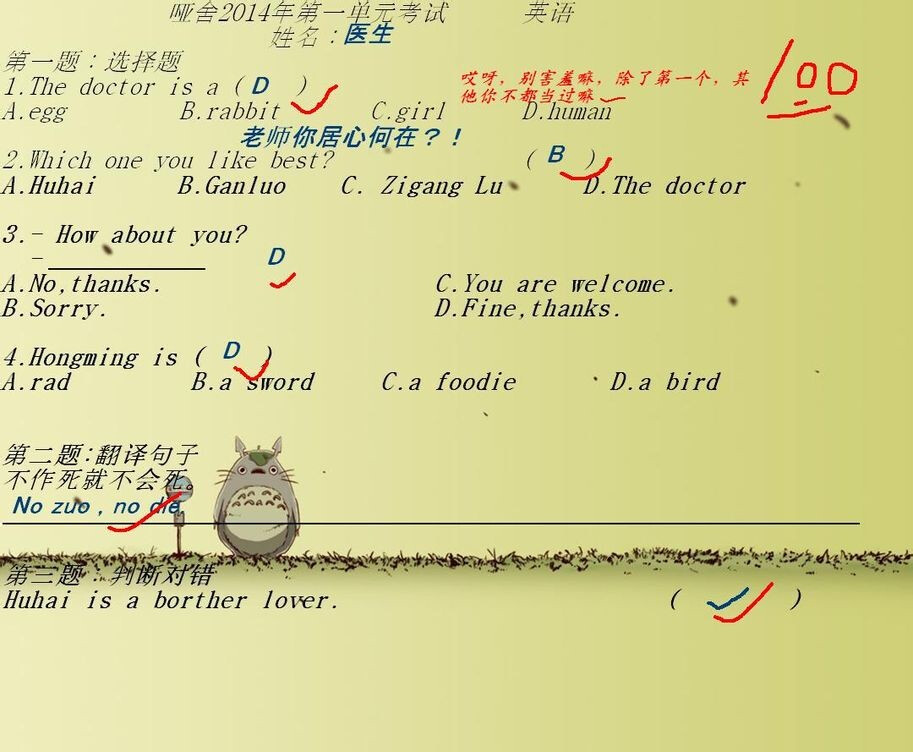 哑舍2014年第一单元考试 英语
姓名：医生
第一题：选择题
1.The doctor is a ( D )
A.egg B.rabbit C.girl D.human
哎呀，别害羞嘛，除了第一个，其
他你不都当过嘛
100
老师你居心何在？！
2.Which one you like best? ( B )
A.Huhai B.Ganluo C. Zigang Lu D.The doctor
3.- How about you?
- D
A.No,thanks. C.You are welcome.
B.Sorry. D.Fine,thanks.
4.Hongming is ( D )
A.rad B.a sword C.a foodie D.a bird
第二题:翻译句子
不作死就不会死。
No zuo , no die.
第三题：判断对错
Huhai is a borther lover. ( ✓ )